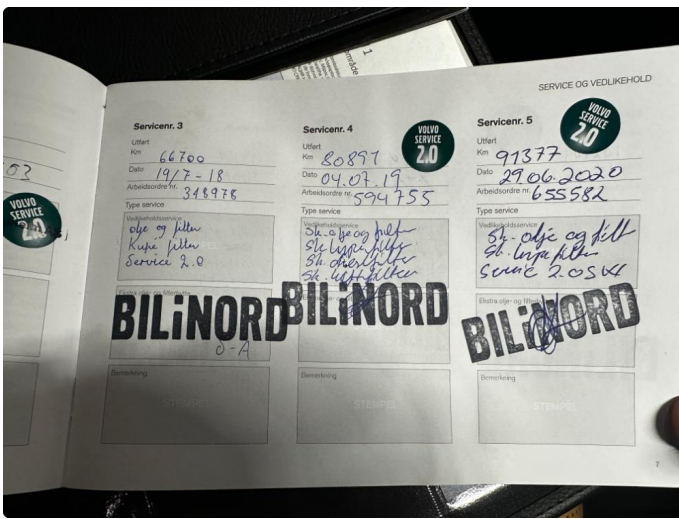 1
område
SERVICE OG VEDLIKEHOLD
VOLVO
SERVICE
2.0
Servicenr. 3
Utført
Km 66700
Dato 19/7-18
Arbeidsordre nr. 348978
Type service
Vedlikeholdsservice
olje og filter
Kupe filter
Service 2.0
Ekstra olje- og filterbytte
BILiNORD
Bemerkning
STEMPEL
Servicenr. 4
VOLVO
SERVICE
2.0
Utført
Km 80891
Dato 04.07.19
Arbeidsordre nr. 594755
Type service
Vedlikeholdsservice
Sk. olje og filter
Sk. kupefilter
Sk. dieselfilter
Sk. luftfilter
BILiNORD
Bemerkning
STEMPEL
Servicenr. 5
VOLVO
SERVICE
2.0
Utført
Km 91377
Dato 29.06.2020
Arbeidsordre nr. 655582
Type service
Vedlikeholdsservice
Sk. olje og filt
Sk. kupefilter
Ekstra olje- og filterbytte
BILiNORD
Bemerkning
STEMPEL
7